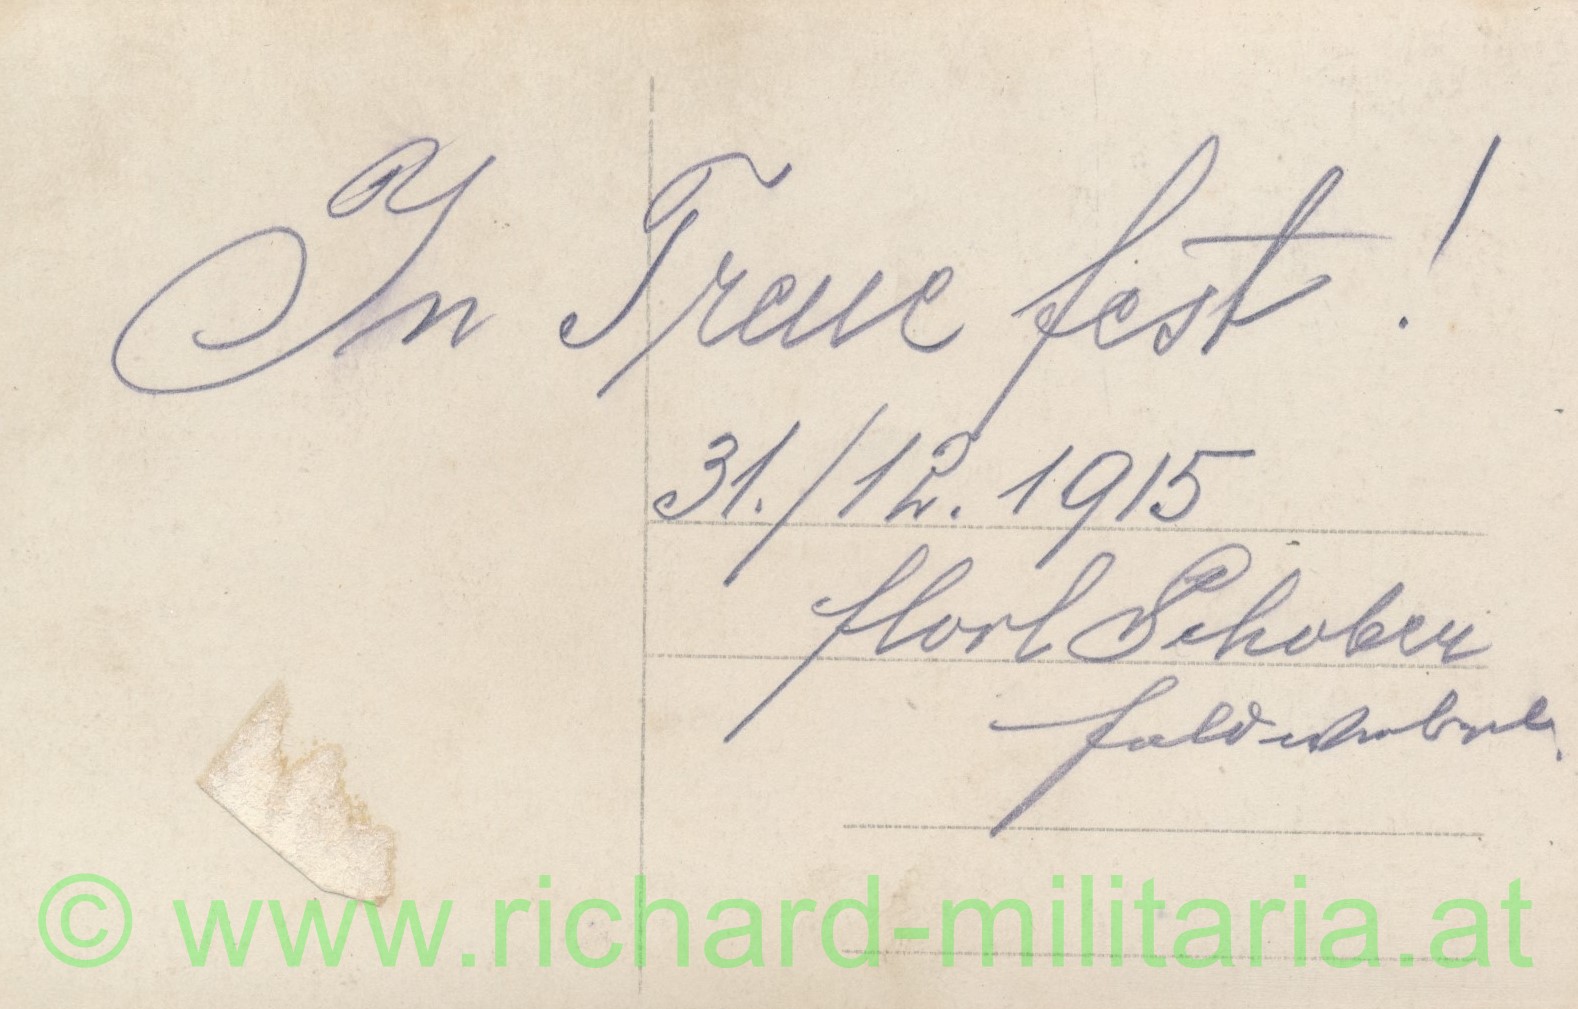 In Treue fest!
31./12. 1915
Florl Schober
Feldwebel.
© www.richard-militaria.at